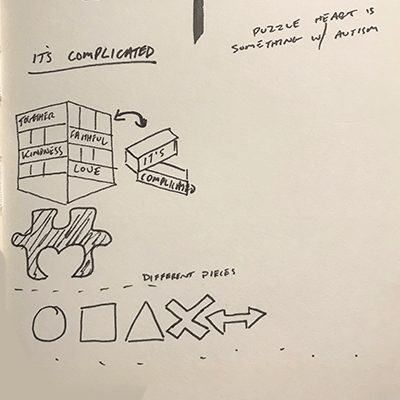 PUZZLE HEART IS
SOMETHING W/ AUTISM
IT'S COMPLICATED
TOGETHER
FAITHFUL
KINDNESS
LOVE
IT'S
COMPLICATED
DIFFERENT PIECES